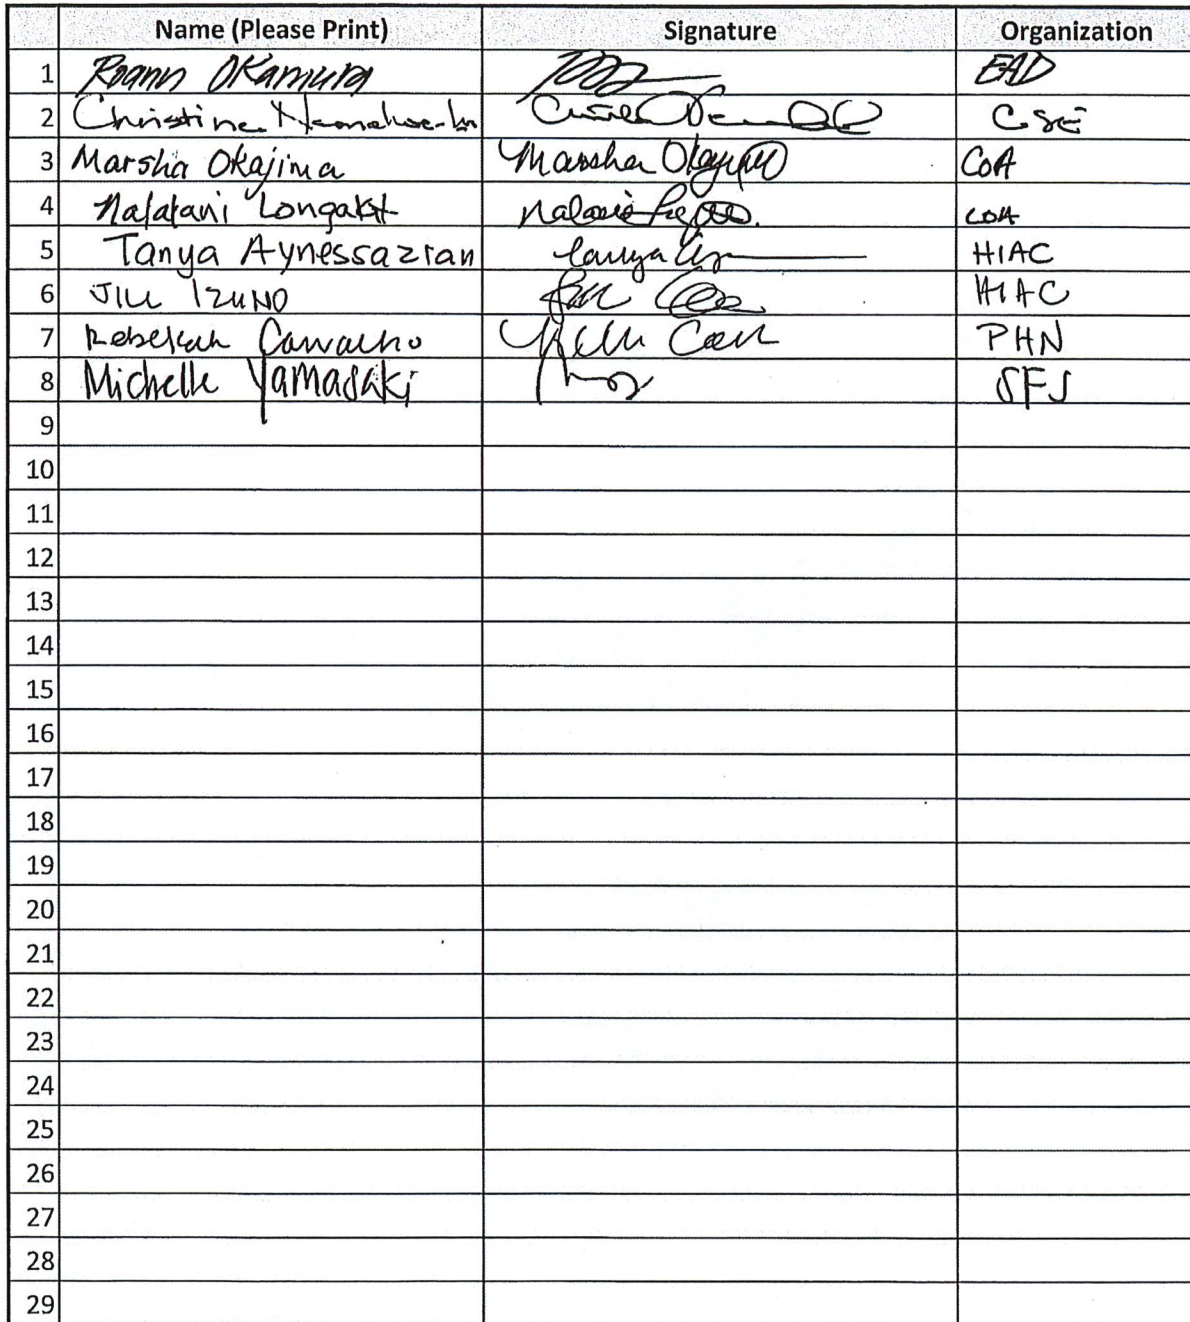 Name (Please Print) Signature Organization
1 Roann Okamura EAD
2 Christine CSE
3 Marsha Okajima Marsha Okajima COA
4 Nalalani Longakit COA
5 Tanya Aynessazian Tanya HIAC
6 JILL IZUNO Jill HIAC
7 Rebekah Carvalho PHN
8 Michelle Yamasaki SFS
9
10
11
12
13
14
15
16
17
18
19
20
21
22
23
24
25
26
27
28
29